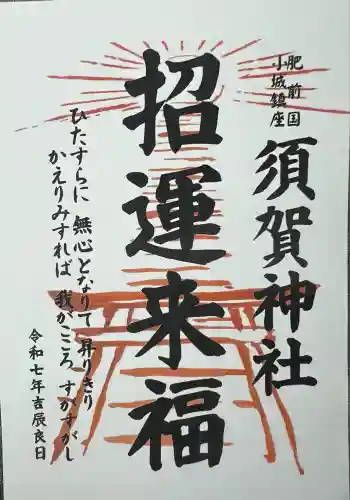 肥前国
小城鎮座
須賀神社
招運来福
ひたすらに 無心となりて 昇りきり
かえりみすれば 我がこころ すがすがし
令和七年吉辰良日